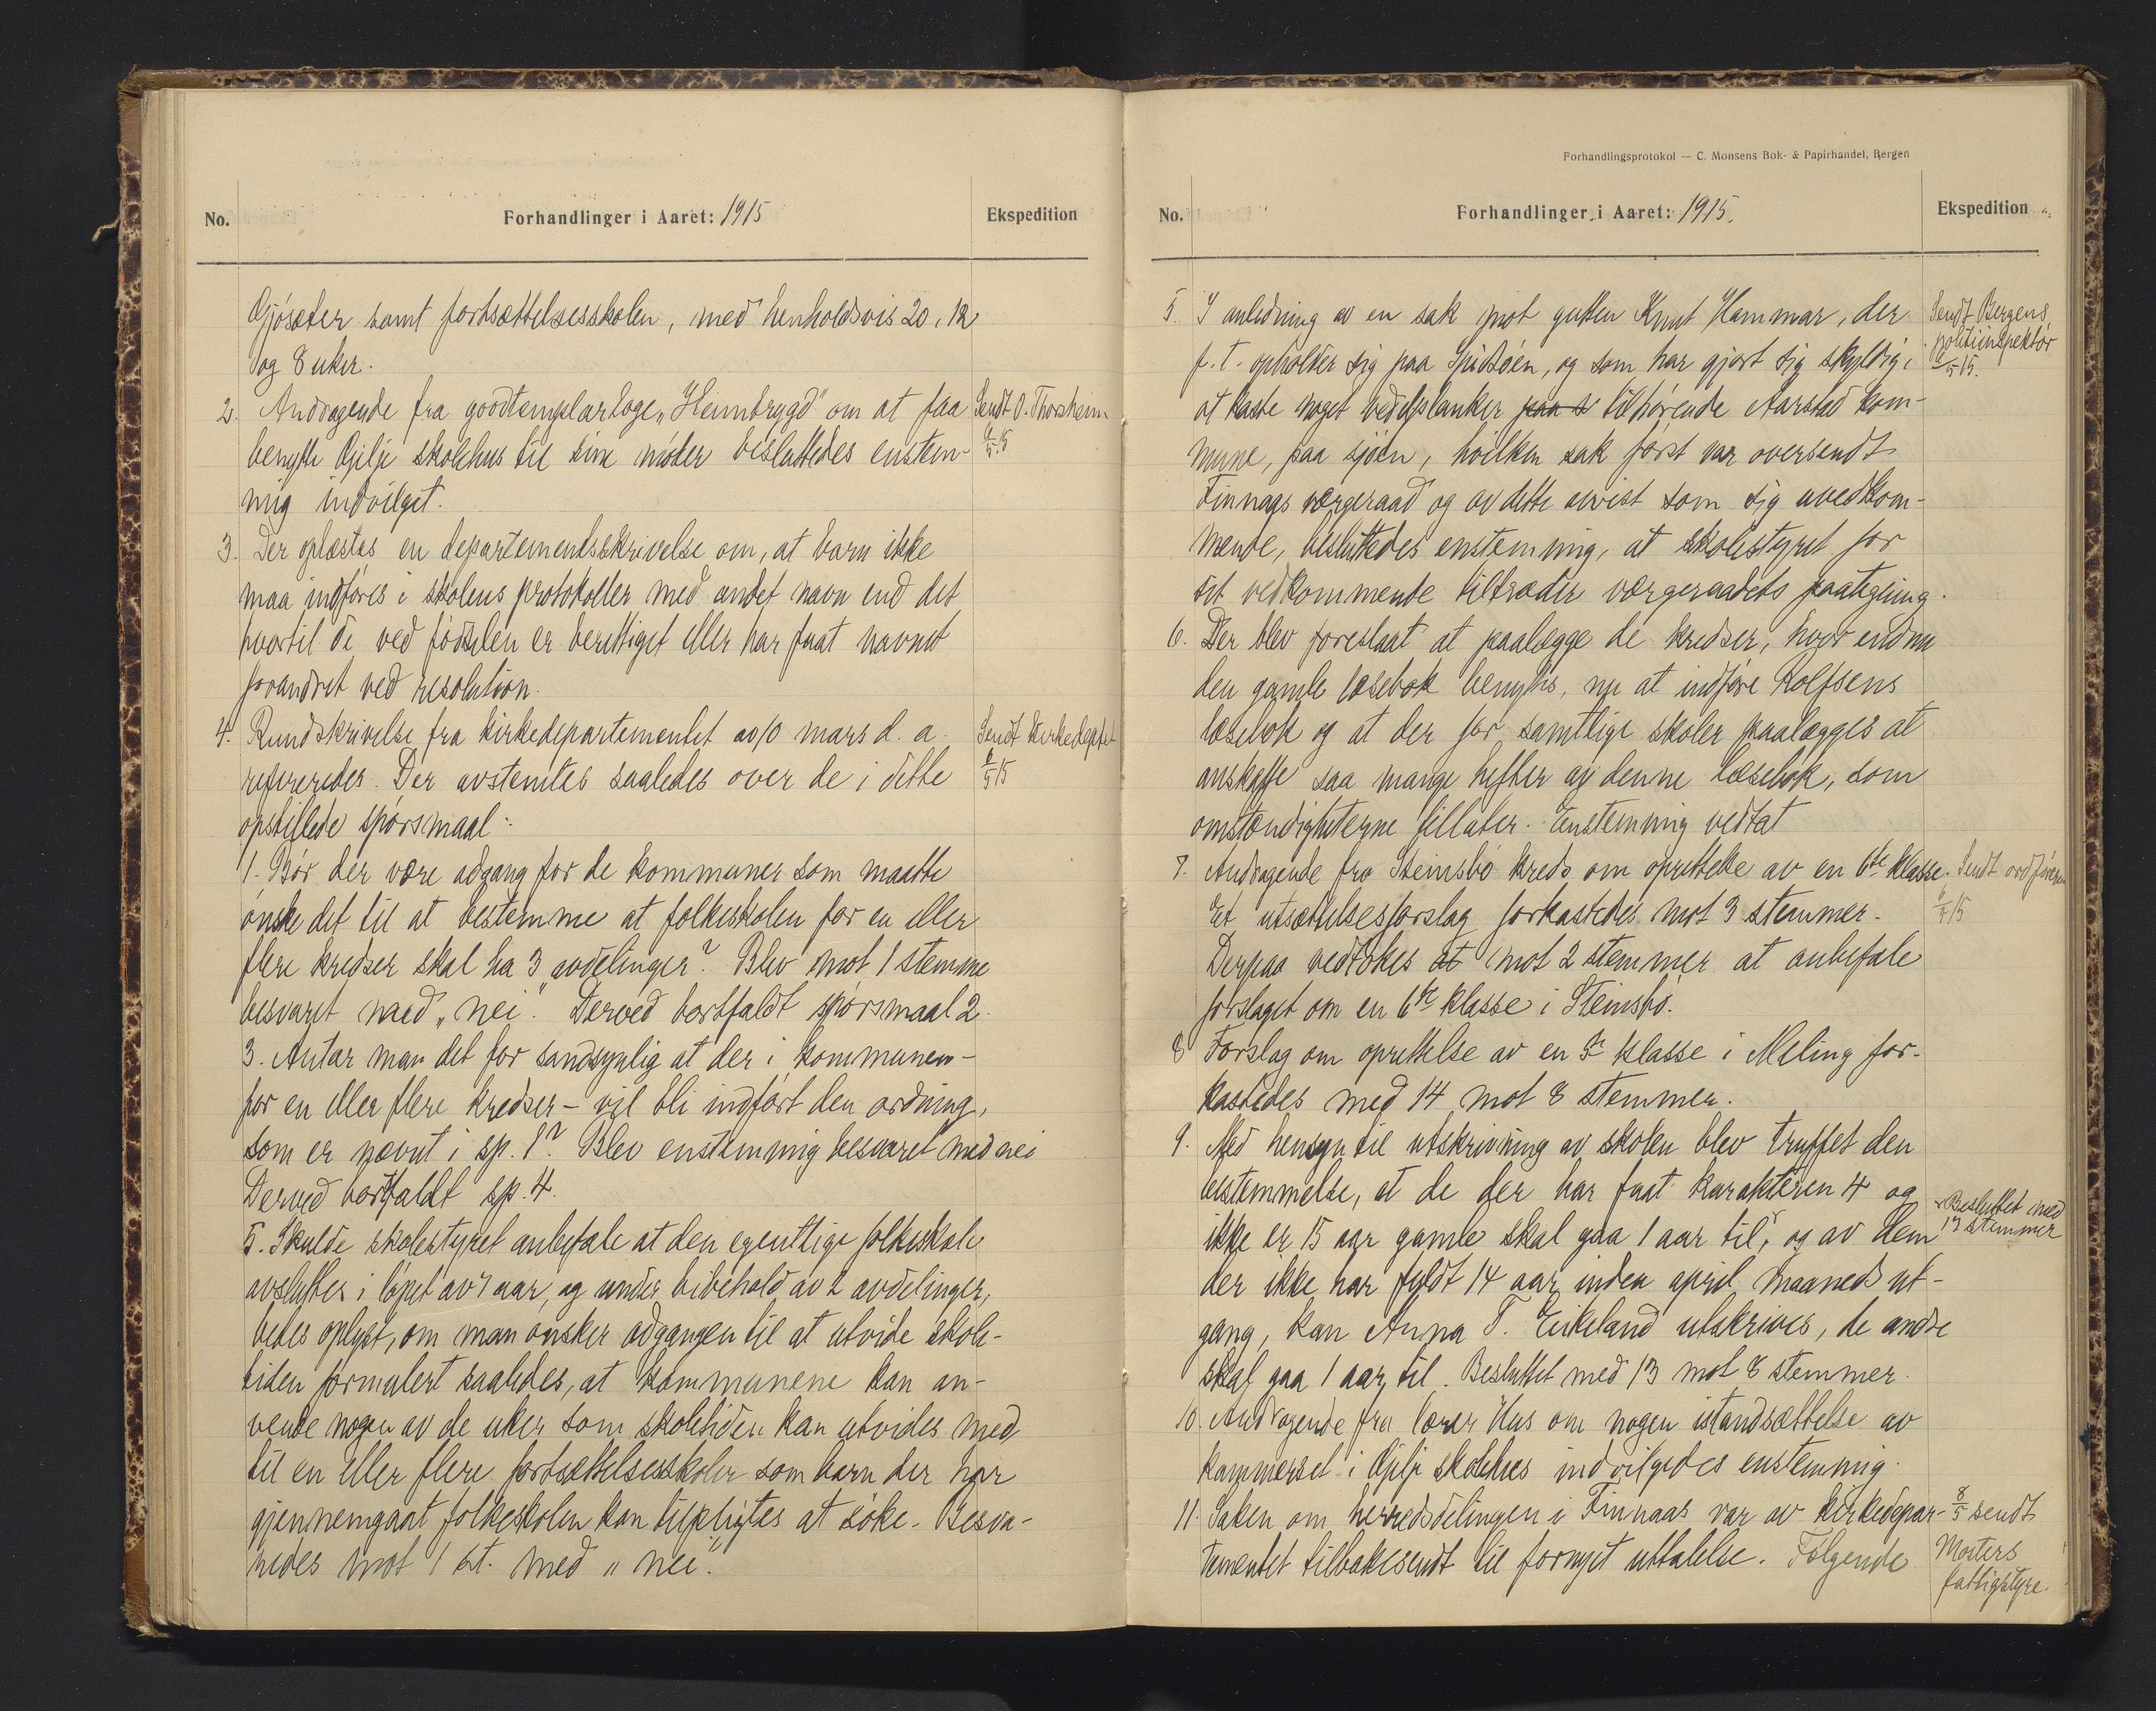 No.
Forhandlinger i Aaret: 1915
Ekspedition
Gjøsæter samt fortsættelsesskolen, med henholdsvis 20, 12
og 8 uker.
2. Andragende fra goodtemplarloge „Heimbrygd" om at faa
Sendt O. Thorsheim
benytte Gilje skolehus til sine møter besluttedes enstem-
6/5 15
mig indvilget.
3. Der oplæstes en departementsskrivelse om, at barn ikke
maa indføres i skolens protokoller med andet navn end det
hvortil de ved fødselen er berettiget eller har faat navnet
forandret ved resolution.
4. Rundskrivelse fra kirkedepartementet av 10 mars d. a.
Sendt Kirkedeptet
refereredes. Der avstemtes saaledes over de i dette
6/5 15
opstillede spørsmaal:
1. Bør der være adgang for de kommuner som maatte
ønske det til at bestemme at folkeskolen for en eller
flere kredser skal ha 3 avdelinger? Blev mot 1 stemme
besvaret med „nei". Derved bortfaldt spørsmaal 2.
3. Antar man det for sandsynlig at der i kommunen –
for en eller flere kredser – vil bli indført den ordning,
som er nævnt i sp. 1? Blev enstemmig besvaret med nei
Derved bortfaldt sp. 4.
5. Skulde skolestyret anbefale at den egentlige folkeskole
avsluttes i løpet av 7 aar, og under bibehold av 2 avdelinger,
bedes oplyst, om man ønsker adgangen til at utvide skole-
tiden formulert saaledes, at kommunene kan an-
vende nogen av de uker som skoletiden kan utvides med
til en eller flere fortsættelsesskoler som barn der har
gjennemgaat folkeskolen kan tilpligtes at søke. Besva-
redes mot 1 st. med „nei".
Forhandlingsprotokol — C. Monsens Bok- & Papirhandel, Bergen
No.
Forhandlinger i Aaret: 1915.
Ekspedition
5. I anledning av en sak mot gutten Knut Hammar, der
Sendt Bergens
f. t. opholder sig paa Spidsøen, og som har gjort sig skyldig i
politiinspektør
6/5 15.
at kaste noget vedelplanker paa s tilhørende Aarstad kom-
mune, paa sjøen, hvilken sak først var oversendt
Finnaas værgeraad og av dette avvist som sig uvedkom-
mende, besluttedes enstemmig, at skolestyret for
sit vedkommende tiltræder værgeraadets paategning.
6. Der blev foreslaat at paalægge de kredser, hvor endnu
den gamle læsebok benyttes, nu at indføre Rolfsens
læsebok og at der for samtlige skoler paalægges at
anskaffe saa mange hefter av denne læsebok, som
omstændigheterne tillater. Enstemmig vedtat
7. Andragende fra Steinsbø kreds om oprettelse av en 6te klasse.
Sendt ordføreren
Et utsættelsesforslag forkastedes mot 3 stemmer.
6/5 15
Derpaa vedtokes at mot 2 stemmer at anbefale
forslaget om en 6te klasse i Steinsbø.
8 Forslag om oprettelse av en klasse i Meling for-
kastedes med 14 mot 8 stemmer.
9. Med hensyn til utskrivning av skolen blev truffet den
bestemmelse, at de der har faat karakteren 4 og
Besluttet med
ikke er 15 aar gamle skal gaa 1 aar til, og av dem
17 stemmer
der ikke har fyldt 14 aar inden april maaneds ut-
gang, kan Anna T. Eikeland utskrives, de andre
skal gaa 1 aar til. Besluttet med 13 mot 8 stemmer.
10. Andragende fra lærer Hus om nogen istandsættelse av
kammerset i Gilje skolehus indvilgedes enstemmig.
11. Saken om herredsdelingen i Finnaas var av kirkedepar-
8/5 sendt
tementet tilbakesendt til fornyet uttalelse. Følgende
Mosters
fattigstyre.